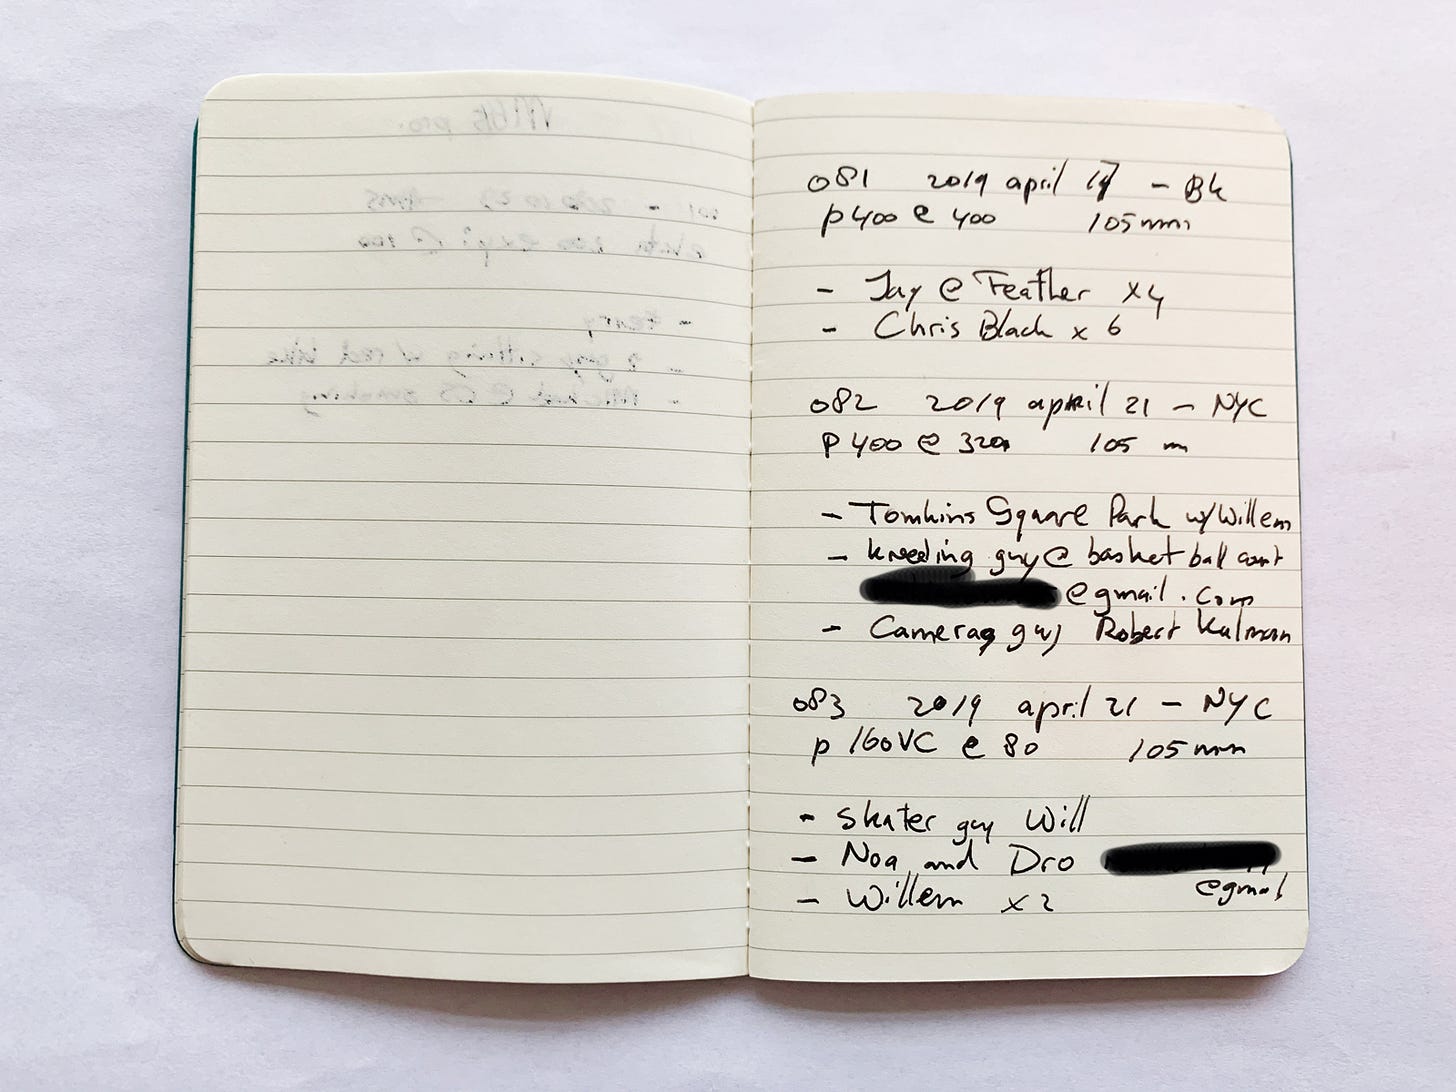 081 2019 april 17 - Bk
p400 @ 400 105mm
- Jay @ Feather x4
- Chris Black x 6
082 2019 april 21 - NYC
P400 @ 320 105 m
- Tomkins Square Park w/Willem
- kneeling guy @ basket ball court
@gmail.com
- Camera guy Robert Kalman
083 2019 april 21 - NYC
p 160VC @ 80 105mm
- Skater guy Will
- Noa and Dro
@gmail
- Willem x2